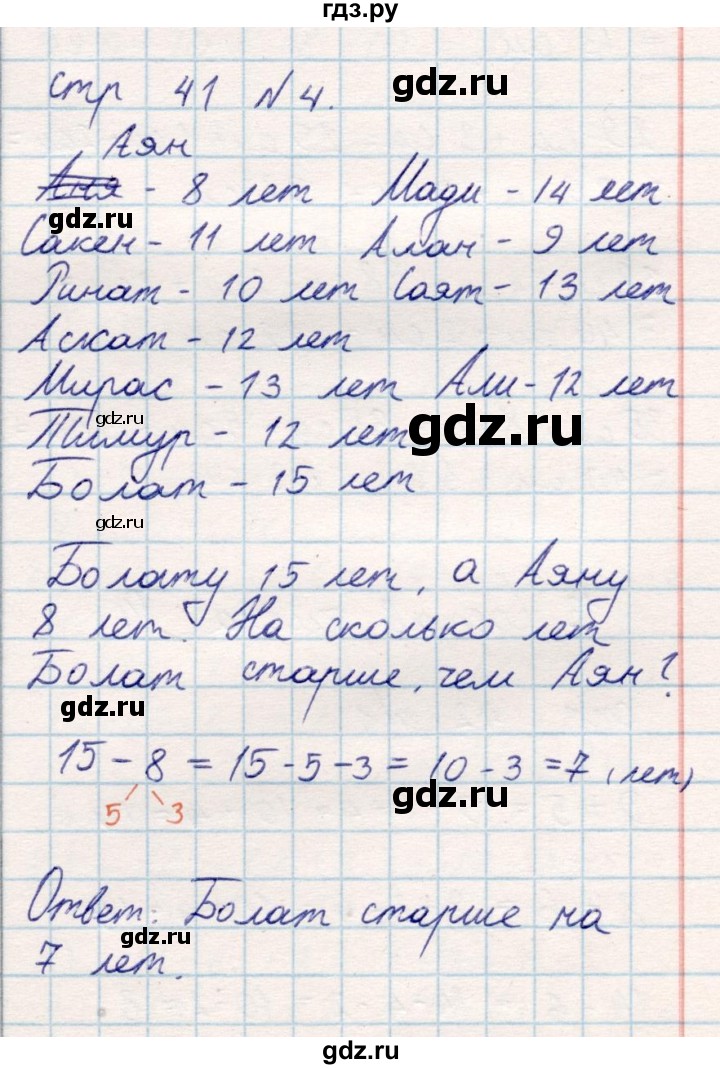 гдз.ру
стр 41 №4.
gdz.ru
Аян
Аня - 8 лет Мади - 14 лет.
gdz.ru
Сакен - 11 лет Алан - 9 лет
Ринат - 10 лет Саят - 13 лет
Аскат - 12 лет
Мирас - 13 лет Али - 12 лет
gdz.ru
Тимур - 12 лет
gdz.ru
Болат - 15 лет
gdz.ru
Болату 15 лет, а Аяну
8 лет. На сколько лет
Болат старше, чем Аян?
gdz.ru
15 - 8 = 15 - 5 - 3 = 10 - 3 = 7 (лет)
5 3
gdz.ru
Ответ: Болат старше на
gdz.ru
7 лет.
gdz.ru